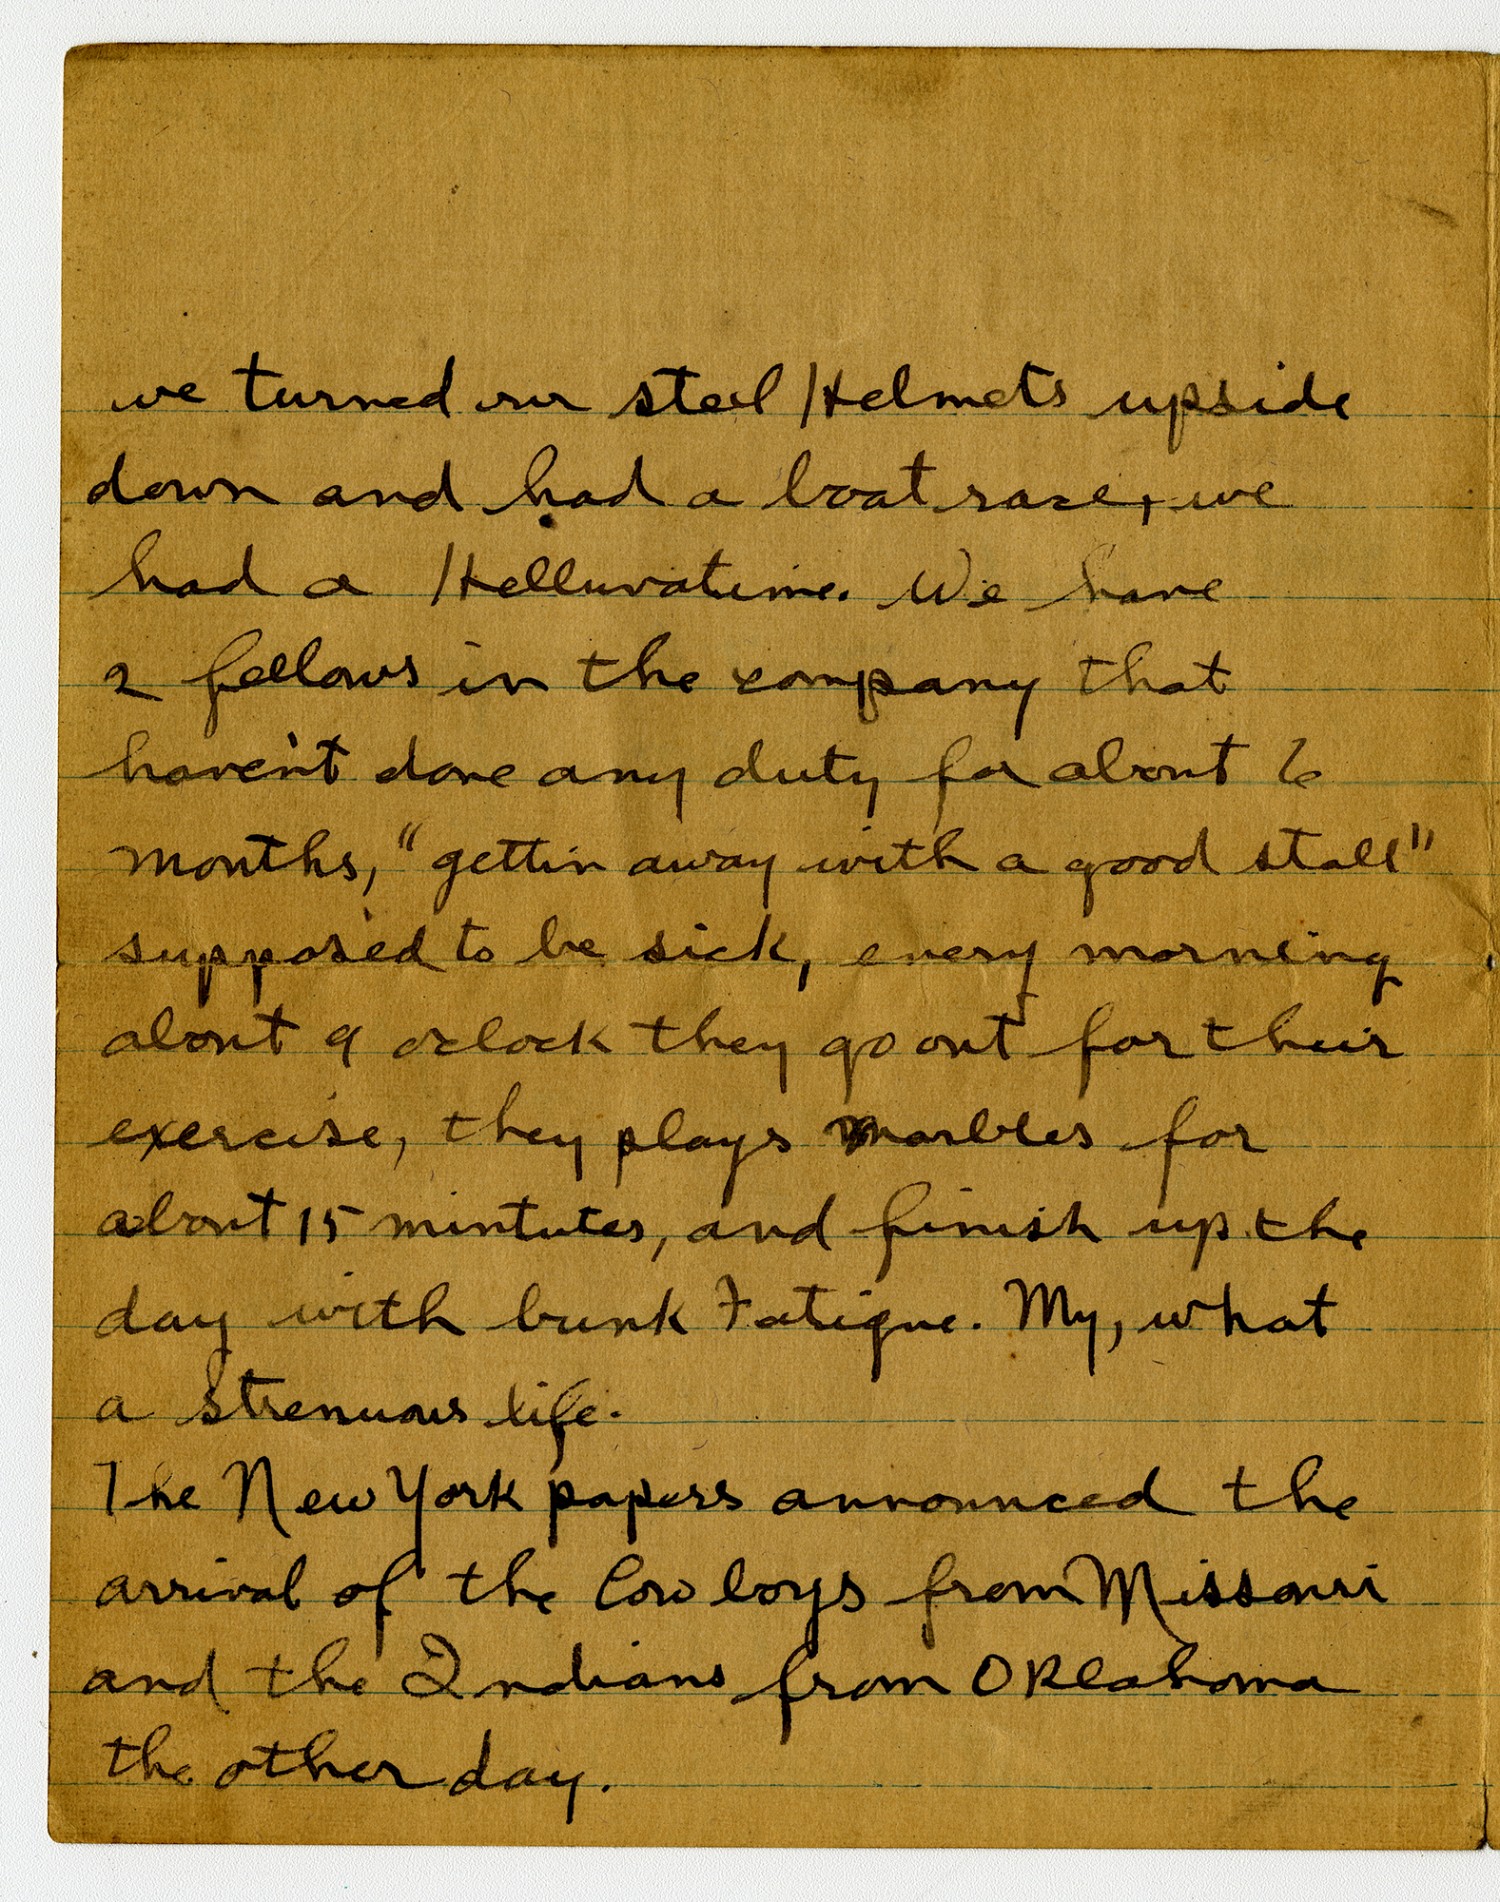 we turned our steel Helmets upside
down and had a boat race, we
had a Helluvatime. We have
2 fellows in the company that
haven't done any duty for about 6
months, "gettin away with a good stall"
supposed to be sick, every morning
about 9 oclock they go out for their
exercise, they plays marbles for
about 15 mintutes, and finish up the
day with bunk Fatigue. My, what
a strenuous life.
The New York papers announced the
arrival of the Cowboys from Missouri
and the Indians from Oklahoma
the other day.